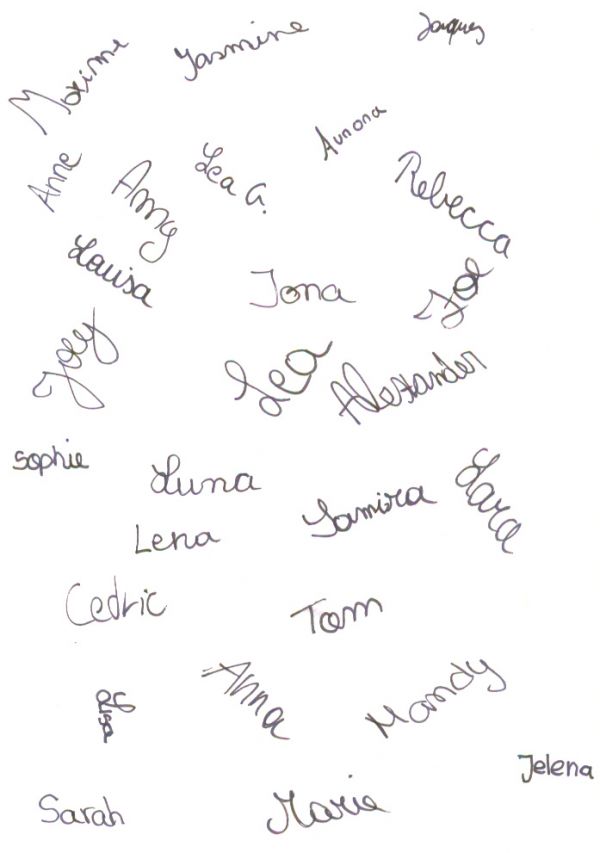 Maxime
Yasmine
Jacques
Anne
Amy
Lea G.
Aurora
Rebecca
Louisa
Jona
Zoe
Joey
Lea
Alexander
Sophie
Luna
Lena
Samira
Lara
Cedric
Tom
Anna
Mandy
Jelena
Sarah
Marie